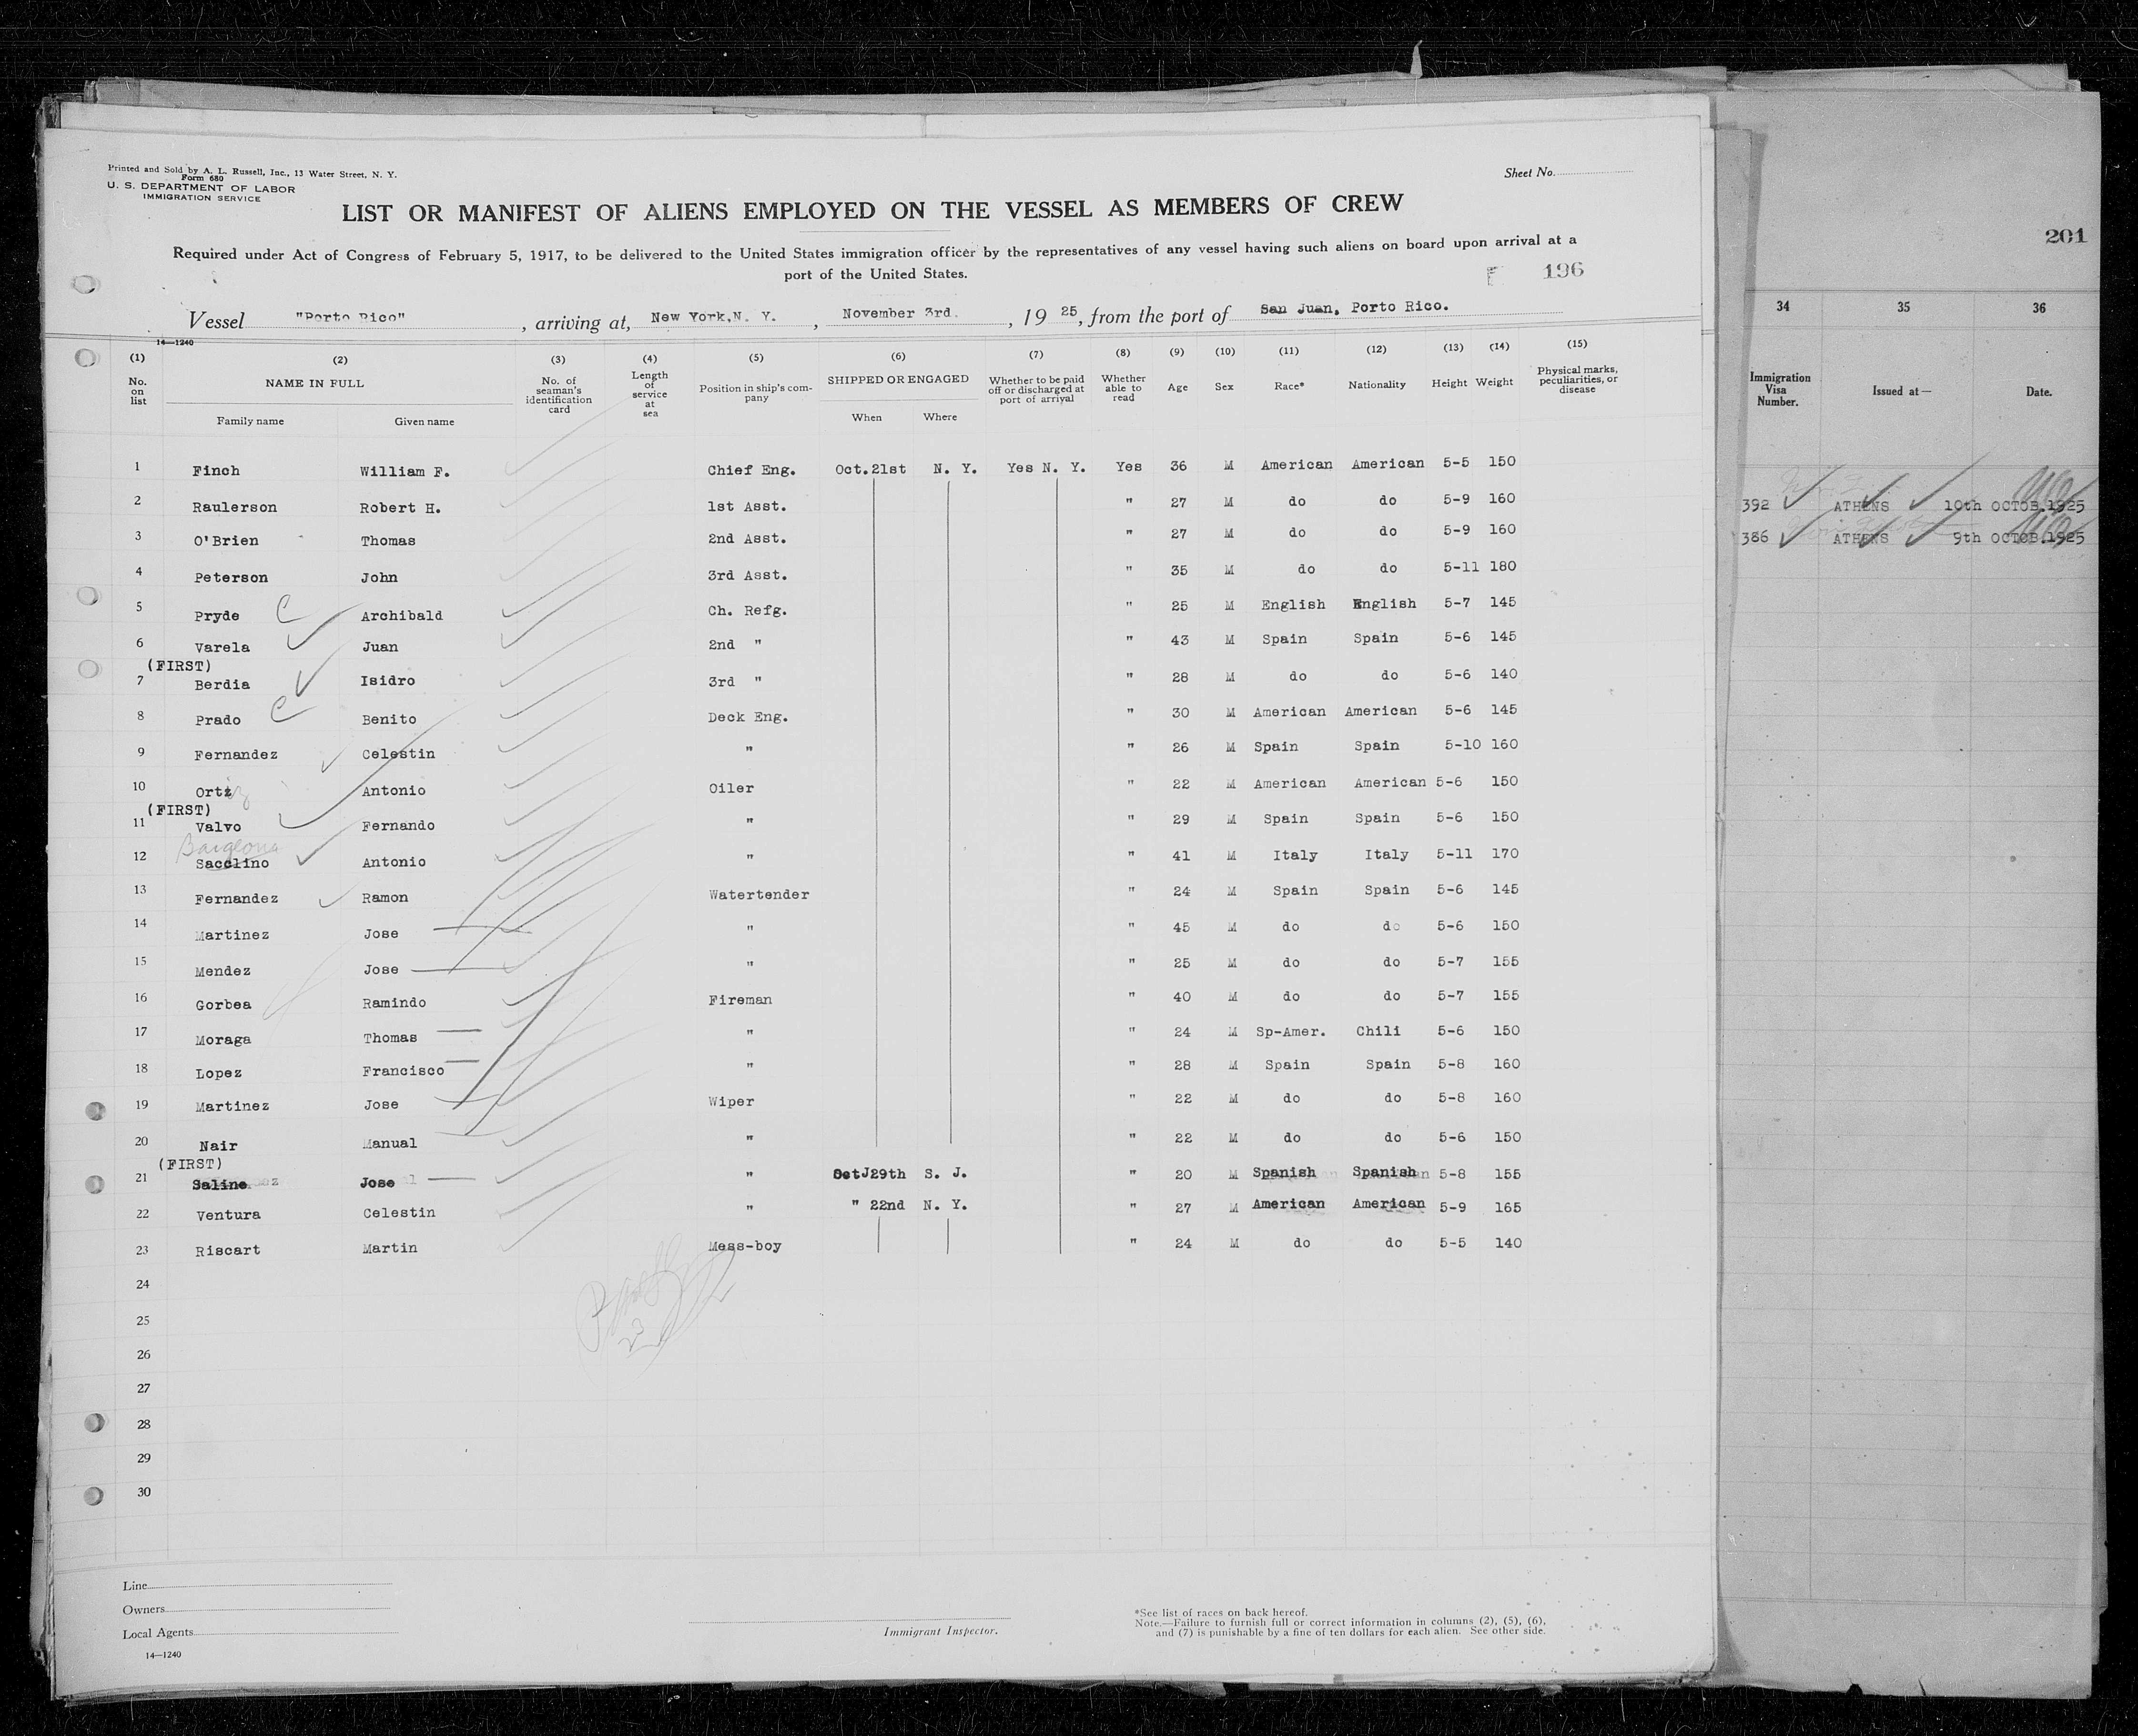 Printed and Sold by A. L. Russell, Inc., 13 Water Street, N. Y.
Form 680
U. S. DEPARTMENT OF LABOR
IMMIGRATION SERVICE
Sheet No.
LIST OR MANIFEST OF ALIENS EMPLOYED ON THE VESSEL AS MEMBERS OF CREW
Required under Act of Congress of February 5, 1917, to be delivered to the United States immigration officer by the representatives of any vessel having such aliens on board upon arrival at a
port of the United States.
F 196
Vessel "Porto Rico", arriving at, New York, N. Y., November 3rd. , 19 25, from the port of San Juan, Porto Rico.
14—1240
(1) (2) (3) (4) (5) (6) (7) (8) (9) (10) (11) (12) (13) (14) (15)
No. on list
NAME IN FULL
Family name Given name
No. of seaman's identification card
Length of service at sea
Position in ship's company
SHIPPED OR ENGAGED
When Where
Whether to be paid off or discharged at port of arrival
Whether able to read
Age
Sex
Race*
Nationality
Height
Weight
Physical marks, peculiarities, or disease
1 Finch William F. Chief Eng. Oct.21st N. Y. Yes N. Y. Yes 36 M American American 5-5 150
2 Raulerson Robert H. 1st Asst. " 27 M do do 5-9 160
3 O'Brien Thomas 2nd Asst. " 27 M do do 5-9 160
4 Peterson John 3rd Asst. " 35 M do do 5-11 180
5 Pryde C Archibald Ch. Refg. " 25 M English English 5-7 145
6 Varela Juan 2nd " " 43 M Spain Spain 5-6 145
(FIRST)
7 Berdia Isidro 3rd " " 28 M do do 5-6 140
8 Prado C Benito Deck Eng. " 30 M American American 5-6 145
9 Fernandez Celestin " " 26 M Spain Spain 5-10 160
10 Ortiz Antonio Oiler " 22 M American American 5-6 150
(FIRST)
11 Valvo Fernando " " 29 M Spain Spain 5-6 150
12 Sacclino Antonio " " 41 M Italy Italy 5-11 170
13 Fernandez Ramon Watertender " 24 M Spain Spain 5-6 145
14 Martinez Jose " " 45 M do do 5-6 150
15 Mendez Jose " " 25 M do do 5-7 155
16 Gorbea Ramindo Fireman " 40 M do do 5-7 155
17 Moraga Thomas " " 24 M Sp-Amer. Chili 5-6 150
18 Lopez Francisco " " 28 M Spain Spain 5-8 160
19 Martinez Jose Wiper " 22 M do do 5-8 160
20 Nair Manual " " 22 M do do 5-6 150
(FIRST)
21 Saline Jose " Oct 29th S. J. " 20 M Spanish Spanish 5-8 155
22 Ventura Celestin " " 22nd N. Y. " 27 M American American 5-9 165
23 Riscart Martin Mess-boy " 24 M do do 5-5 140
23
24
25
26
27
28
29
30
Line
Owners
Local Agents
14—1240
Immigrant Inspector.
*See list of races on back hereof.
Note.—Failure to furnish full or correct information in columns (2), (5), (6),
and (7) is punishable by a fine of ten dollars for each alien. See other side.
201
34 35 36
Immigration Visa Number.
Issued at—
Date.
392 ATHENS 10th OCTOB.1925
386 ATHENS 9th OCTOB.1925